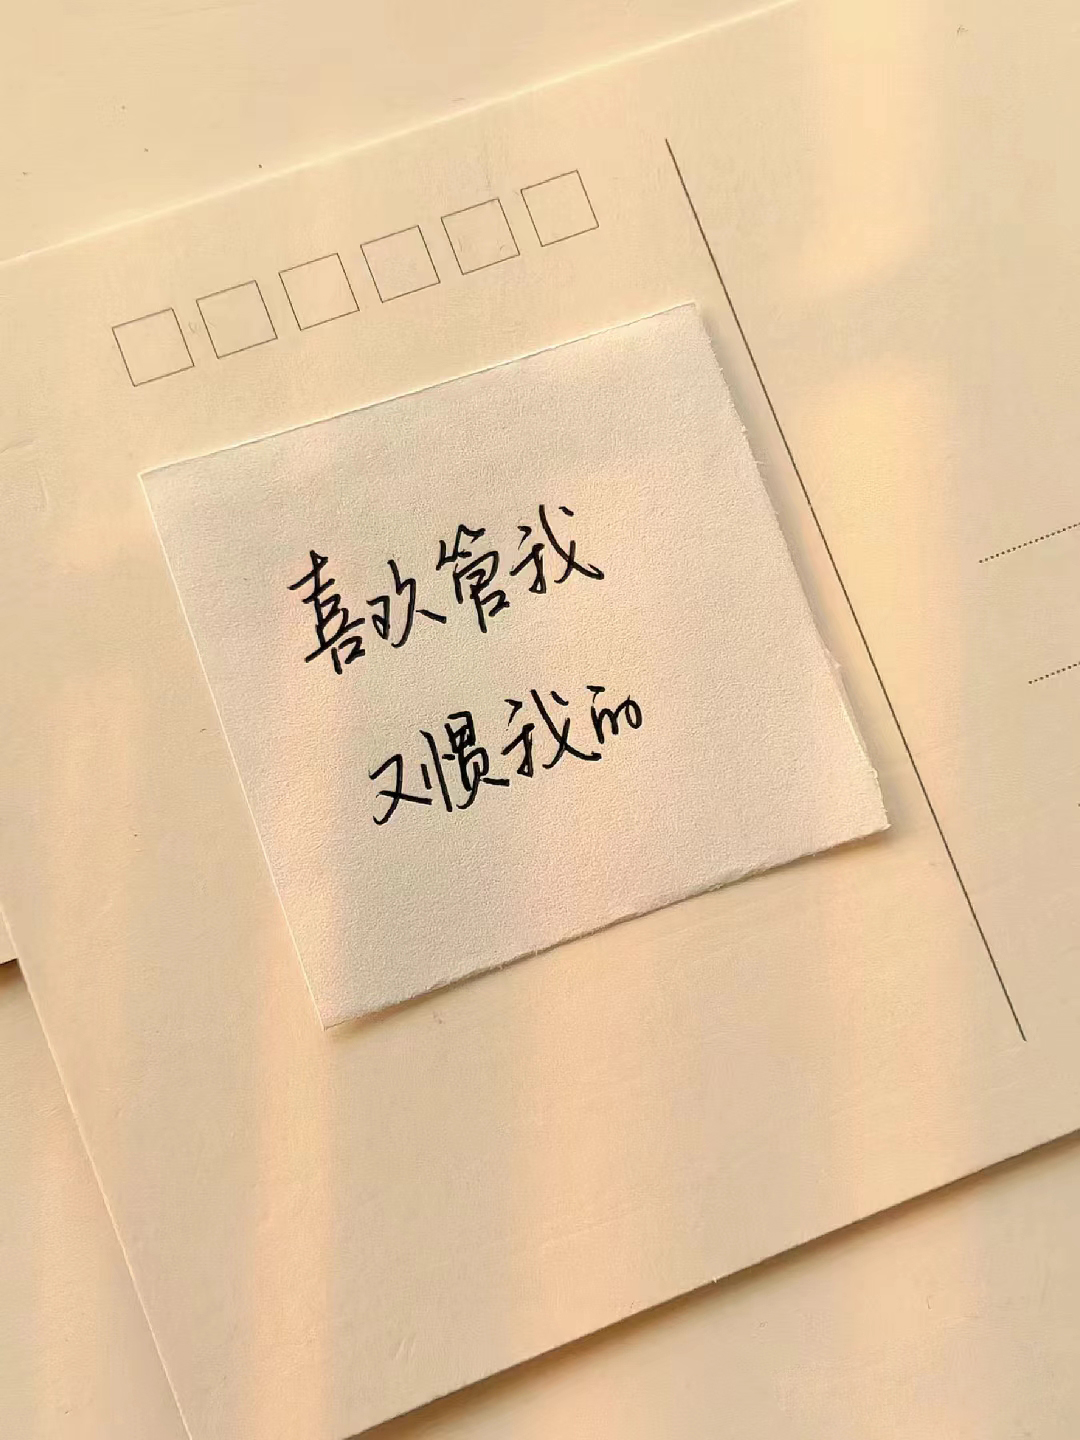 喜欢管我
又惯我的